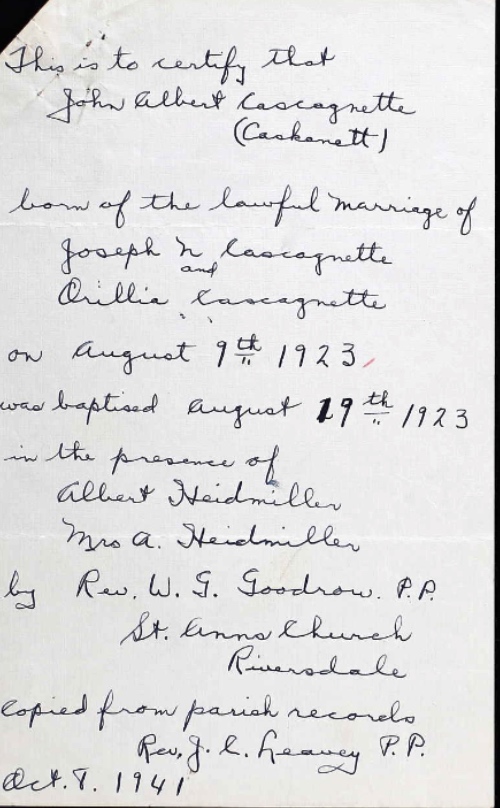 This is to certify that
John Albert Cascagnette
(Caskanett)
born of the lawful marriage of
Joseph N Cascagnette
and
Orillia Cascagnette
on August 9th 1923
was baptised August 19th 1923
in the presence of
Albert Heidmiller
Mrs A. Heidmiller
by Rev. W. G. Goodrow. P.P.
St. Anns Church
Riversdale
Copied from parish records
Rev. J. C. Leavey P.P.
Oct. 8. 1941